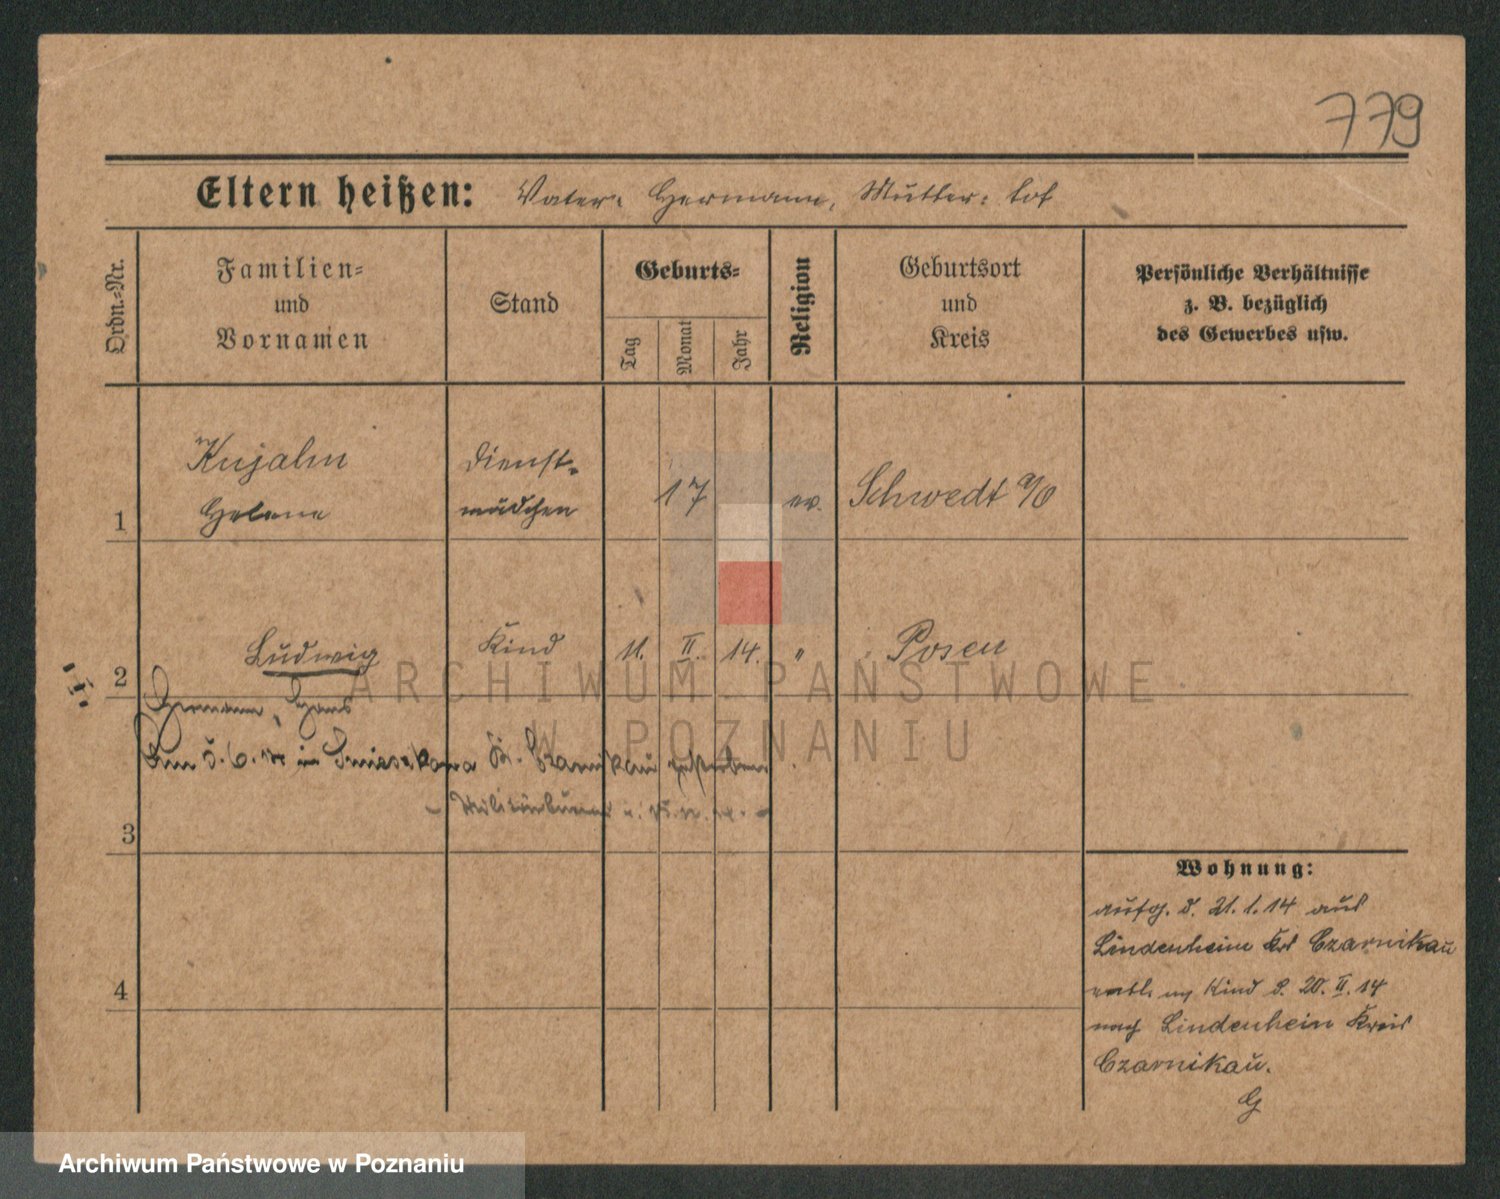 779
Eltern heißen: Vater: Hermann, Mutter: tot
Ordn.-Nr.
Familien-
und
Vornamen
Stand
Geburts-
Tag
Monat
Jahr
Religion
Geburtsort
und
Kreis
Persönliche Verhältnisse
z. B. bezüglich
des Gewerbes usw.
Kujahn Dienst-
1 Helene mädchen 17 ev. Schwedt a/O
2 Ludwig Kind 11. II. 14. " Posen
Hermann, Hans
Am 5. 6. in Kr. Czarnikau gestorben.
3
4
Wohnung:
aufg. d. 21. 1. 14 aus
Lindenhein Krs Czarnikau
entl. m Kind d. 20. II. 14
nach Lindenhein Kreis
Czarnikau.
G
ARCHIWUM PAŃSTWOWE
W POZNANIU
Archiwum Państwowe w Poznaniu